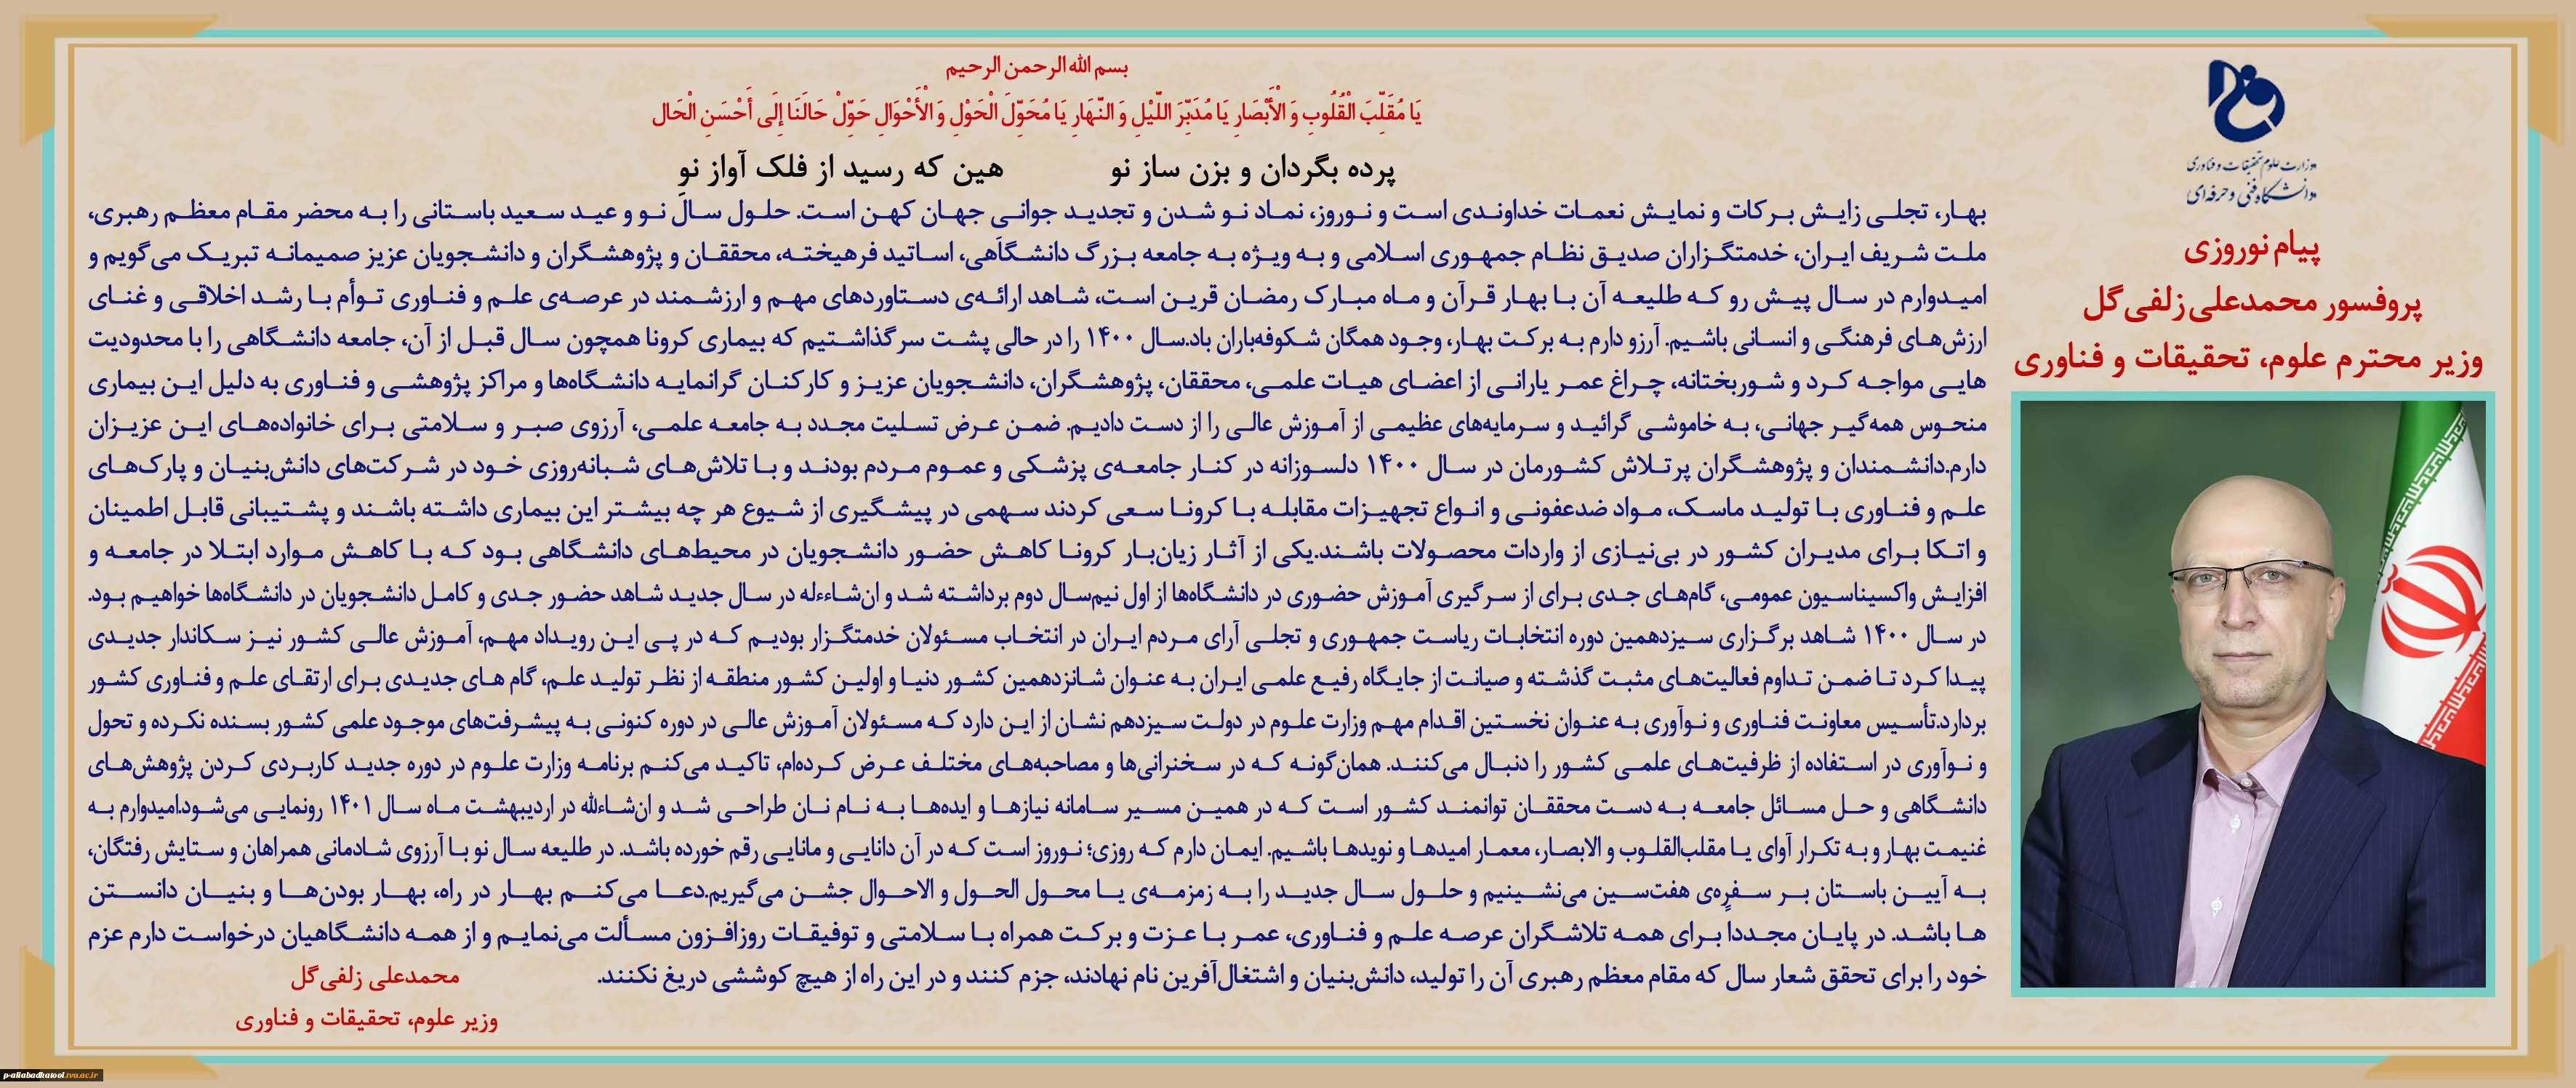 وزارت علوم، تحقیقات و فناوری
دانشگاه فنی و حرفه‌ای
پیام نوروزی
پروفسور محمدعلی زلفی‌گل
وزیر محترم علوم، تحقیقات و فناوری
بسم الله الرحمن الرحیم
يَا مُقَلِّبَ الْقُلُوبِ وَ الْأَبْصَارِ يَا مُدَبِّرَ اللَّيْلِ وَ النَّهَارِ يَا مُحَوِّلَ الْحَوْلِ وَ الْأَحْوَالِ حَوِّلْ حَالَنَا إِلَى أَحْسَنِ الْحَال
پرده بگردان و بزن ساز نو هین که رسید از فلک آواز نو
بهار، تجلی زایش برکات و نمایش نعمات خداوندی است و نوروز، نماد نو شدن و تجدید جوانی جهان کهن است. حلول سال نو و عید سعید باستانی را به محضر مقام معظم رهبری،
ملت شریف ایران، خدمتگزاران صدیق نظام جمهوری اسلامی و به ویژه به جامعه بزرگ دانشگاهی، اساتید فرهیخته، محققان و پژوهشگران و دانشجویان عزیز صمیمانه تبریک می‌گویم و
امیدوارم در سال پیش رو که طلیعه آن با بهار قرآن و ماه مبارک رمضان قرین است، شاهد ارائه‌ی دستاوردهای مهم و ارزشمند در عرصه‌ی علم و فناوری توأم با رشد اخلاقی و غنای
ارزش‌های فرهنگی و انسانی باشیم. آرزو دارم به برکت بهار، وجود همگان شکوفه‌باران باد.سال ۱۴۰۰ را در حالی پشت سر گذاشتیم که بیماری کرونا همچون سال قبل از آن، جامعه دانشگاهی را با محدودیت
هایی مواجه کرد و شوربختانه، چراغ عمر یارانی از اعضای هیات علمی، محققان، پژوهشگران، دانشجویان عزیز و کارکنان گرانمایه دانشگاه‌ها و مراکز پژوهشی و فناوری به دلیل این بیماری
منحوس همه‌گیر جهانی، به خاموشی گرائید و سرمایه‌های عظیمی از آموزش عالی را از دست دادیم. ضمن عرض تسلیت مجدد به جامعه علمی، آرزوی صبر و سلامتی برای خانواده‌های این عزیزان
دارم.دانشمندان و پژوهشگران پرتلاش کشورمان در سال ۱۴۰۰ دلسوزانه در کنار جامعه‌ی پزشکی و عموم مردم بودند و با تلاش‌های شبانه‌روزی خود در شرکت‌های دانش‌بنیان و پارک‌های
علم و فناوری با تولید ماسک، مواد ضدعفونی و انواع تجهیزات مقابله با کرونا سعی کردند سهمی در پیشگیری از شیوع هر چه بیشتر این بیماری داشته باشند و پشتیبانی قابل اطمینان
و اتکا برای مدیران کشور در بی‌نیازی از واردات محصولات باشند.یکی از آثار زیان‌بار کرونا کاهش حضور دانشجویان در محیط‌های دانشگاهی بود که با کاهش موارد ابتلا در جامعه و
افزایش واکسیناسیون عمومی، گام‌های جدی برای از سرگیری آموزش حضوری در دانشگاه‌ها از اول نیم‌سال دوم برداشته شد و ان‌شاءءله در سال جدید شاهد حضور جدی و کامل دانشجویان در دانشگاه‌ها خواهیم بود.
در سال ۱۴۰۰ شاهد برگزاری سیزدهمین دوره انتخابات ریاست جمهوری و تجلی آرای مردم ایران در انتخاب مسئولان خدمتگزار بودیم که در پی این رویداد مهم، آموزش عالی کشور نیز سکاندار جدیدی
پیدا کرد تا ضمن تداوم فعالیت‌های مثبت گذشته و صیانت از جایگاه رفیع علمی ایران به عنوان شانزدهمین کشور دنیا و اولین کشور منطقه از نظر تولید علم، گام های جدیدی برای ارتقای علم و فناوری کشور
بردارد.تأسیس معاونت فناوری و نوآوری به عنوان نخستین اقدام مهم وزارت علوم در دولت سیزدهم نشان از این دارد که مسئولان آموزش عالی در دوره کنونی به پیشرفت‌های موجود علمی کشور بسنده نکرده و تحول
و نوآوری در استفاده از ظرفیت‌های علمی کشور را دنبال می‌کنند. همان‌گونه که در سخنرانی‌ها و مصاحبه‌های مختلف عرض کرده‌ام، تاکید می‌کنم برنامه وزارت علوم در دوره جدید کاربردی کردن پژوهش‌های
دانشگاهی و حل مسائل جامعه به دست محققان توانمند کشور است که در همین مسیر سامانه نیازها و ایده‌ها به نام نان طراحی شد و ان‌شاءالله در اردیبهشت ماه سال ۱۴۰۱ رونمایی می‌شود.امیدوارم به
غنیمت بهار و به تکرار آوای یا مقلب‌القلوب و الابصار، معمار امیدها و نویدها باشیم. ایمان دارم که روزی؛ نوروز است که در آن دانایی و مانایی رقم خورده باشد. در طلیعه سال نو با آرزوی شادمانی همراهان و ستایش رفتگان،
به آیین باستان بر سفره‌ی هفت‌سین می‌نشینیم و حلول سال جدید را به زمزمه‌ی یا محول الحول و الاحوال جشن می‌گیریم.دعا می‌کنم بهار در راه، بهار بودن‌ها و بنیان دانستن
ها باشد. در پایان مجددا برای همه تلاشگران عرصه علم و فناوری، عمر با عزت و برکت همراه با سلامتی و توفیقات روزافزون مسألت می‌نمایم و از همه دانشگاهیان درخواست دارم عزم
خود را برای تحقق شعار سال که مقام معظم رهبری آن را تولید، دانش‌بنیان و اشتغال‌آفرین نام نهادند، جزم کنند و در این راه از هیچ کوششی دریغ نکنند.
محمدعلی زلفی‌گل
وزیر علوم، تحقیقات و فناوری
p-aliabadkatool.tvu.ac.ir